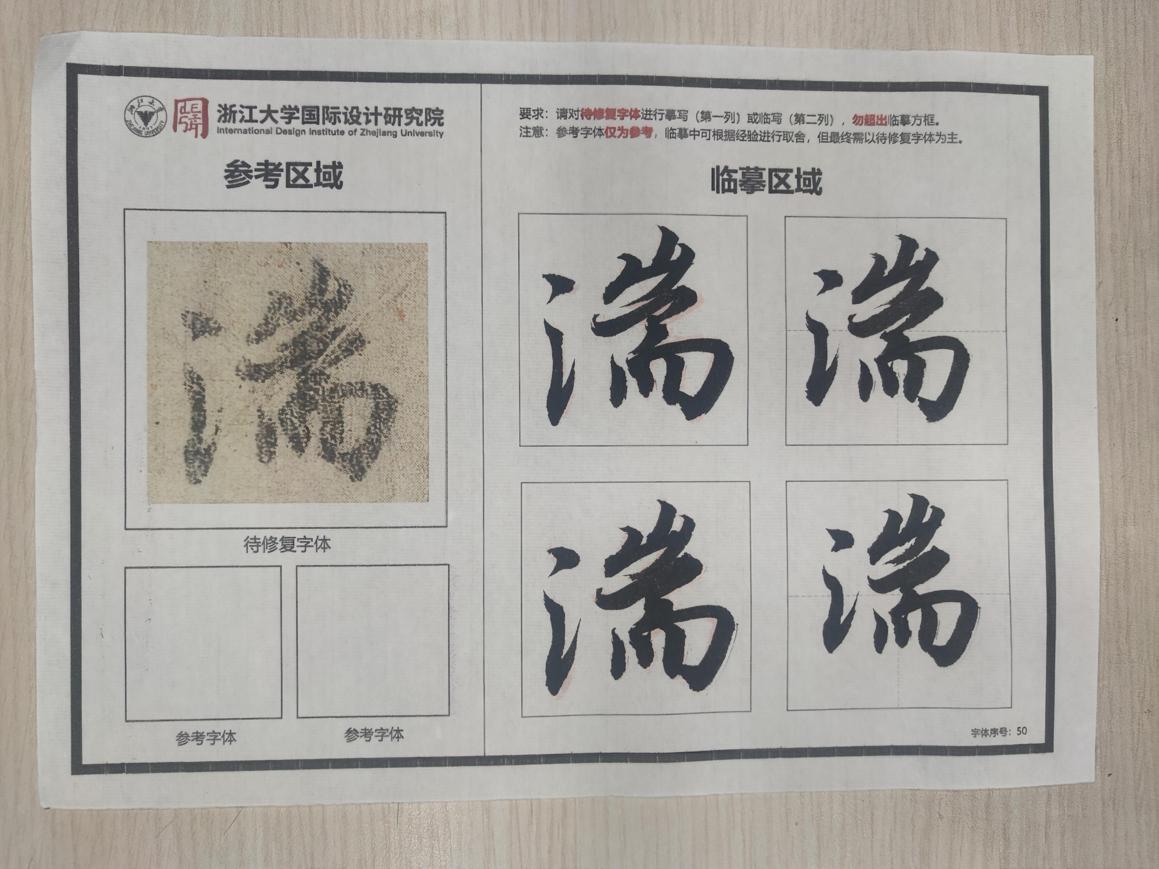 浙江大学国际设计研究院
International Design Institute of Zhejiang University
参考区域
湍
待修复字体
参考字体
参考字体
要求：请对待修复字体进行摹写（第一列）或临写（第二列），勿超出临摹方框。
注意：参考字体仅为参考，临摹中可根据经验进行取舍，但最终需以待修复字体为主。
临摹区域
湍 湍
湍 湍
字体序号：50